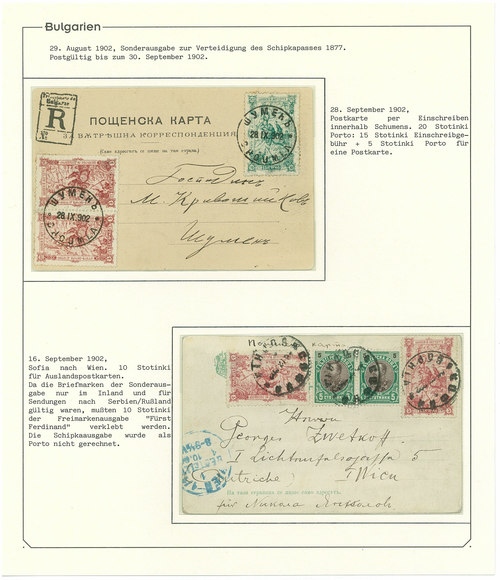 Bulgarien
29. August 1902, Sonderausgabe zur Verteidigung des Schipkapasses 1877.
Postgültig bis zum 30. September 1902.
28. September 1902,
Postkarte per Einschreiben
innerhalb Schumens. 20 Stotinki
Porto: 15 Stotinki Einschreibge-
bühr + 5 Stotinki Porto für
eine Postkarte.
R
ПОЩЕНСКА КАРТА
ВѪТРѢШНА КОРРЕСПОНДЕНЦИЯ
(Адресътъ се пише само на тая страна).
ШУМЕНЪ
28 IX 902
ШУМЕНЪ
28 IX 902
Господинъ
М.
Шуменъ
16. September 1902,
Sofia nach Wien. 10 Stotinki
für Auslandspostkarten.
Da die Briefmarken der Sonderaus-
gabe nur im Inland und für
Sendungen nach Serbien/Rußland
gültig waren, mußten 10 Stotinki
der Freimarkenausgabe "Fürst
Ferdinand" verklebt werden.
Die Schipkaausgabe wurde als
Porto nicht gerechnet.
5 5
Herrn
Georges Zwetkoff
I Lichtenfelsgasse 5
Wien
На тази страница се пише само адресътъ.
für Никола